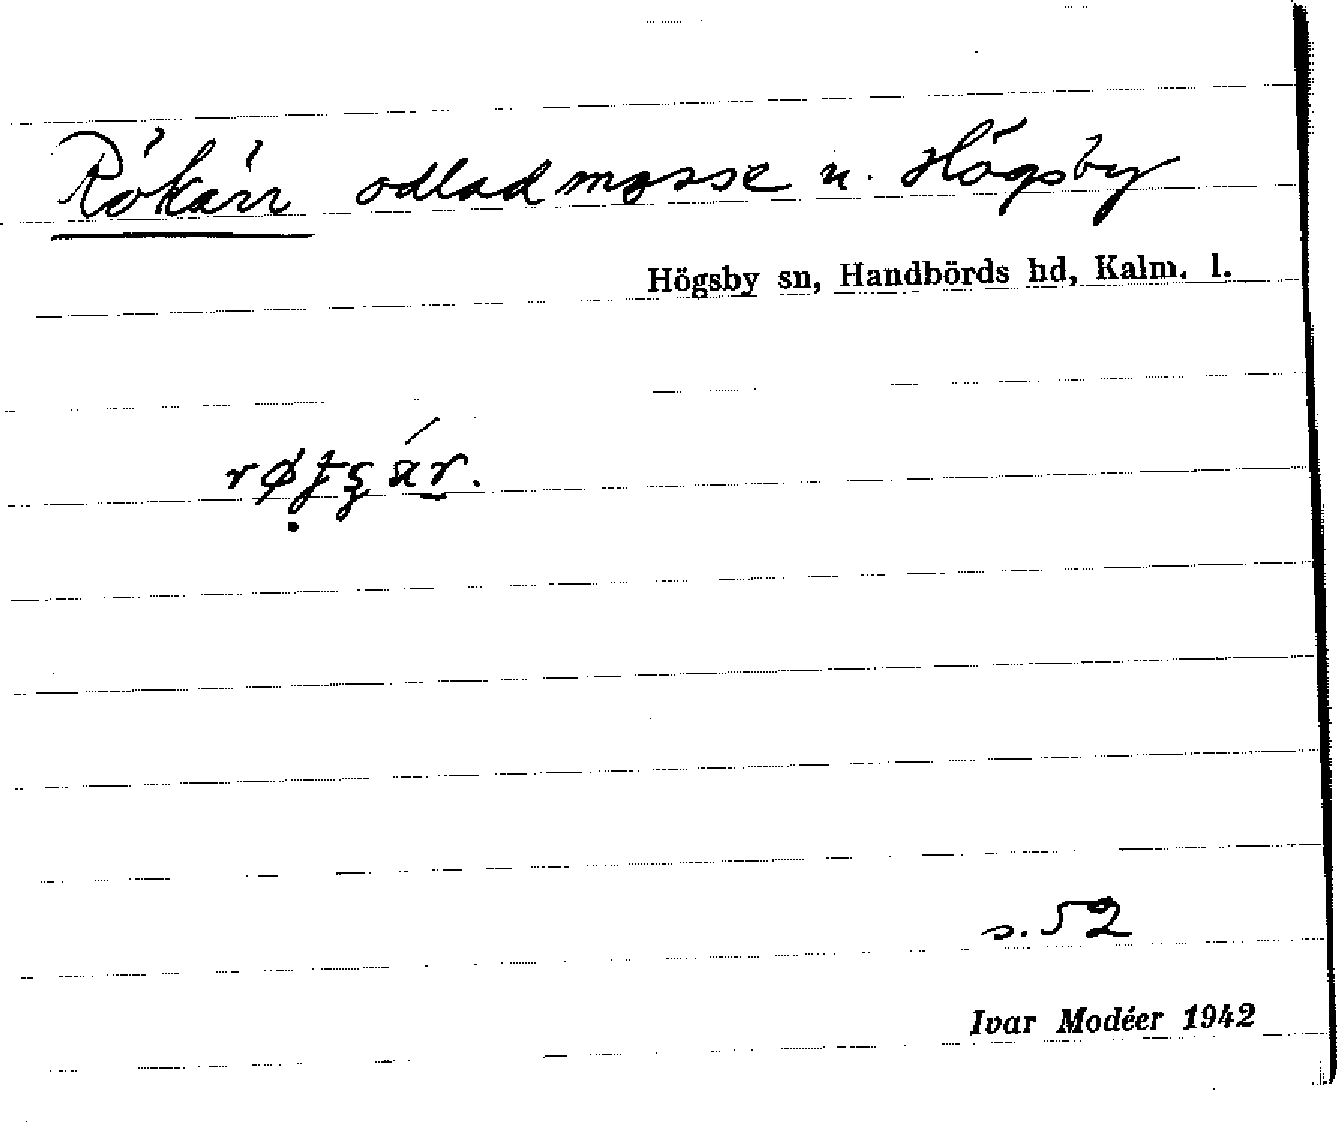 Rókärr odlad mosse n. Högsby
Högsby sn, Handbörds hd, Kalm. l.
s. 52
Ivar Modéer 1942